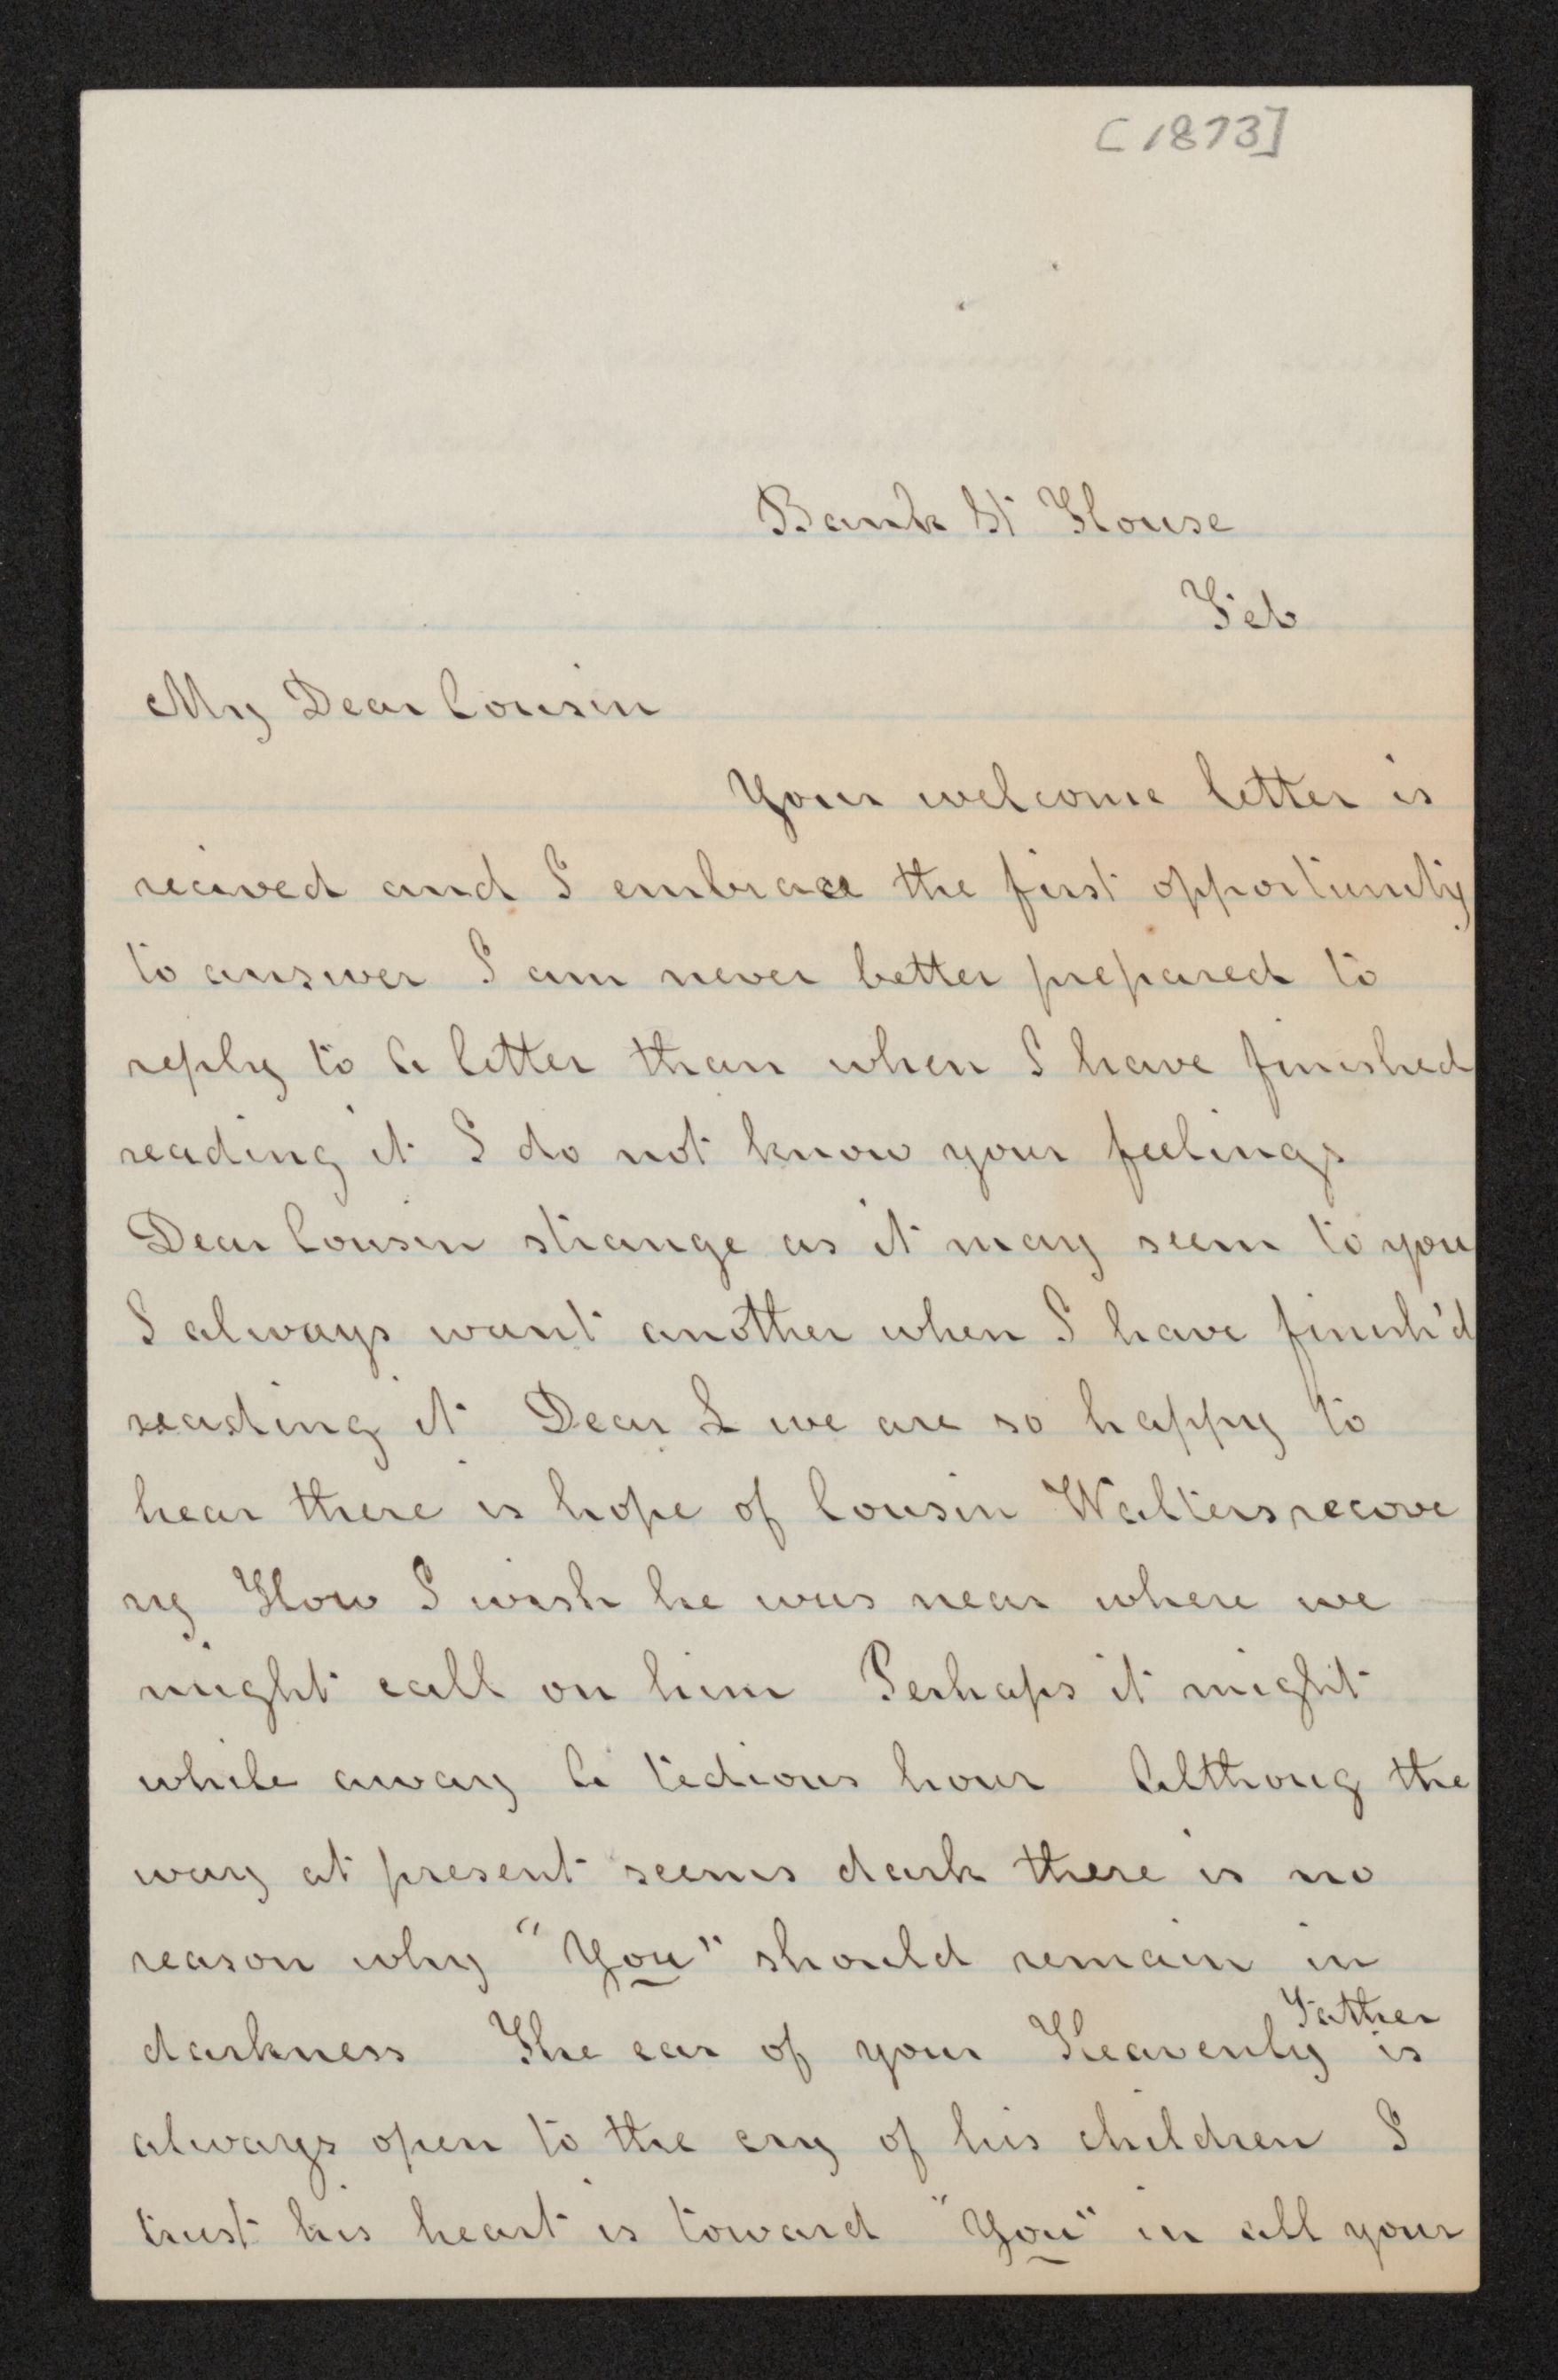 [1873]
Bank St House
Feb
My Dear Cousin
Your welcome letter is
recived and I embrace the first opportunity
to answer I am never better prepared to
reply to a letter than when I have finished
reading it I do not know your feelings
Dear Cousin strange as it may seem to you
I always want another when I have finish'd
reading it Dear L we are so happy to
hear there is hope of Cousin Walters recove
ry How I wish he was near where we
might call on him Perhaps it might
while away a tedious hour Althoug the
way at present seems dark there is no
reason why "You" should remain in
Father
darkness The ear of your Heavenly is
always open to the cry of his children I
trust his heart is toward "You" in all your